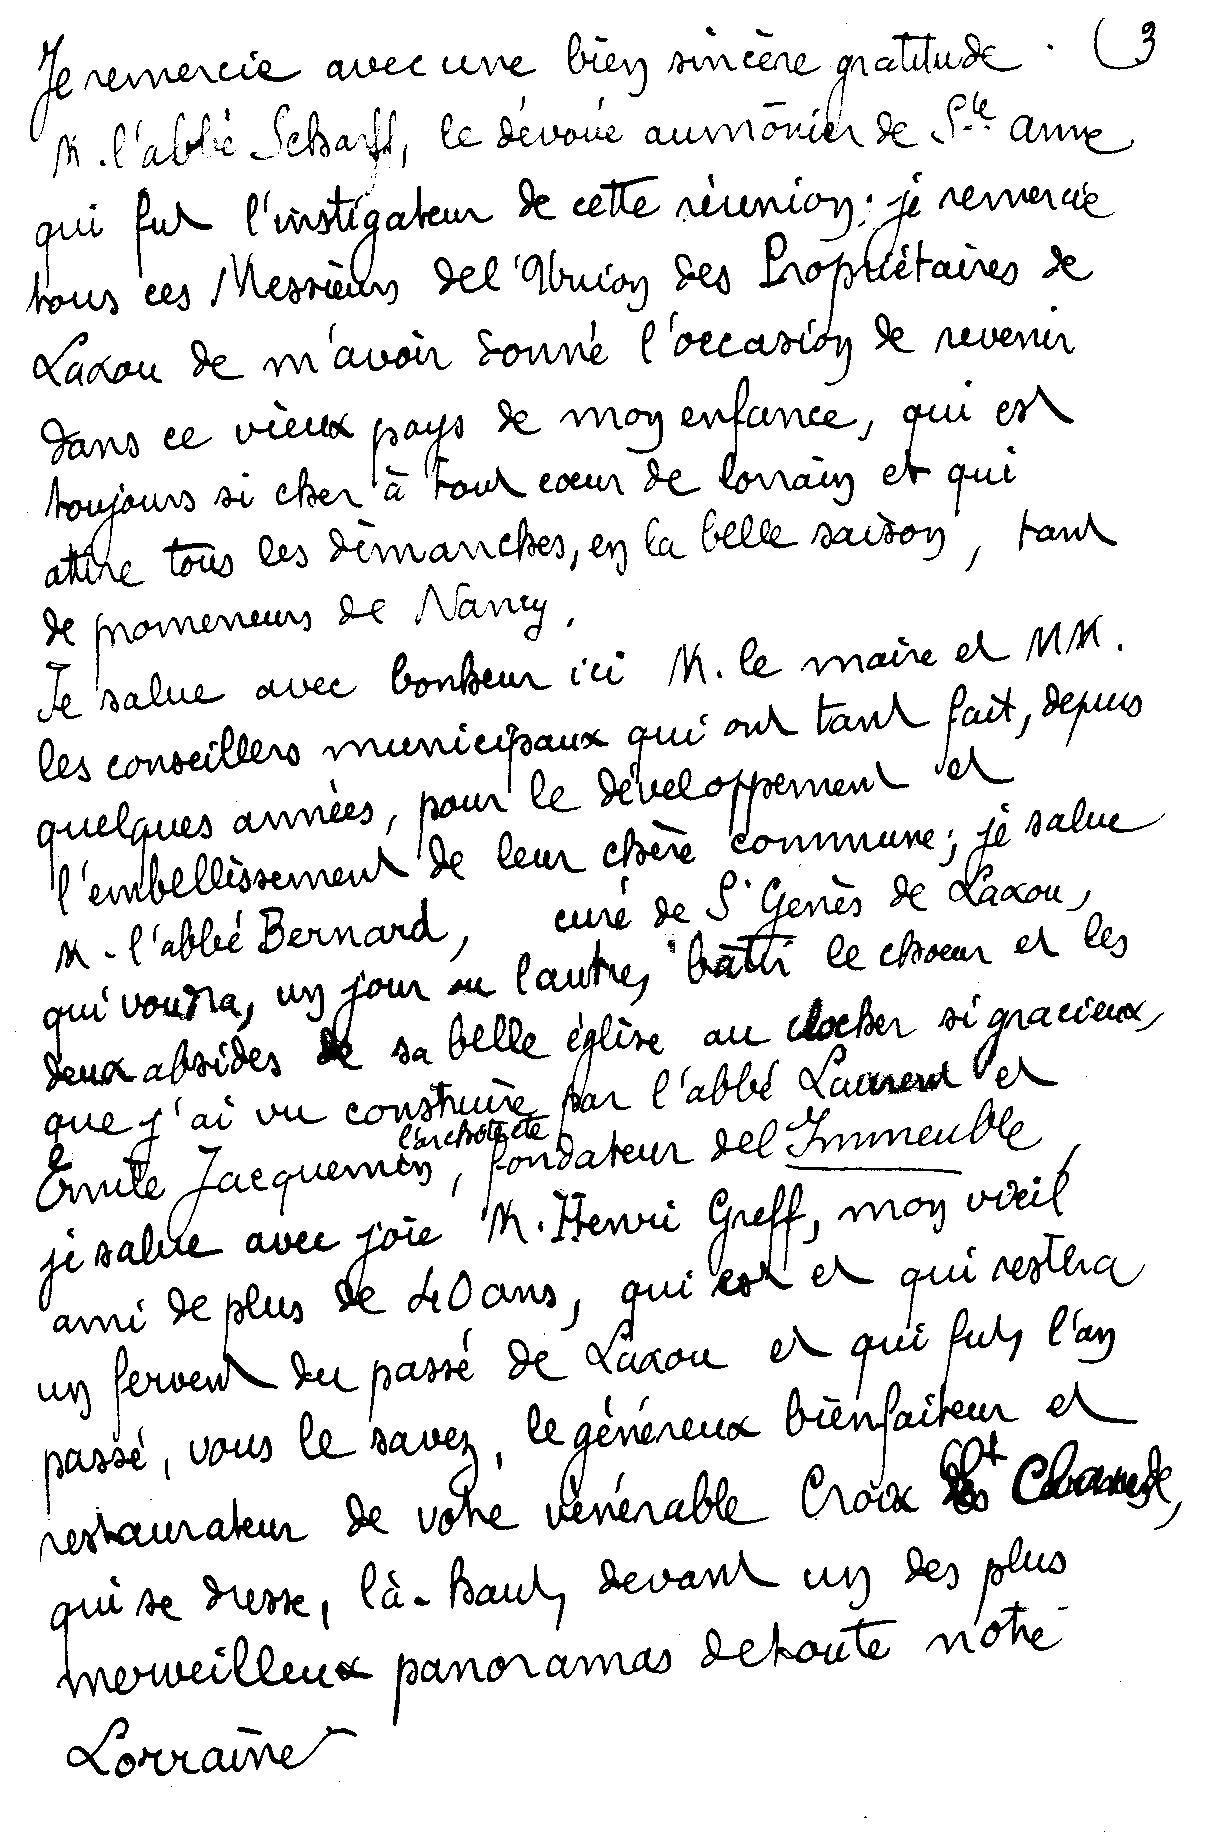 Je remercie avec une bien sincère gratitude. (3
M. l'abbé Scharff, le dévoué aumônier de Ste anne
qui fut l'instigateur de cette réunion; je remercie
tous ces Messieurs de l'Union des Propriétaires de
Laxou de m'avoir donné l'occasion de revenir
dans ce vieux pays de mon enfance, qui est
toujours si cher à tout cœur de lorrain et qui
attire tous les dimanches, en la belle saison, tant
de promeneurs de Nancy.
Je salue avec bonheur ici M. le maire et MM.
les conseillers municipaux qui ont tant fait, depuis
quelques années, pour le développement et
l'embellissement de leur chère commune; je salue
M. l'abbé Bernard, curé de St Genès de Laxou,
qui voudra, un jour ou l'autre, bâtir le chœur et les
deux absides de sa belle église au clocher si gracieux,
que j'ai vu construire par l'abbé Laurent et
l'architecte
Emile Jacquemin, fondateur de l'Immeuble,
je salue avec joie M. Henri Greff, mon vieil
ami de plus de 40 ans, qui est et qui restera
un fervent du passé de Laxou et qui fut, l'an
passé, vous le savez, le généreux bienfaiteur et
restaurateur de votre vénérable Croix
qui se dresse, là-haut, devant un des plus
merveilleux panoramas de toute notre
Lorraine